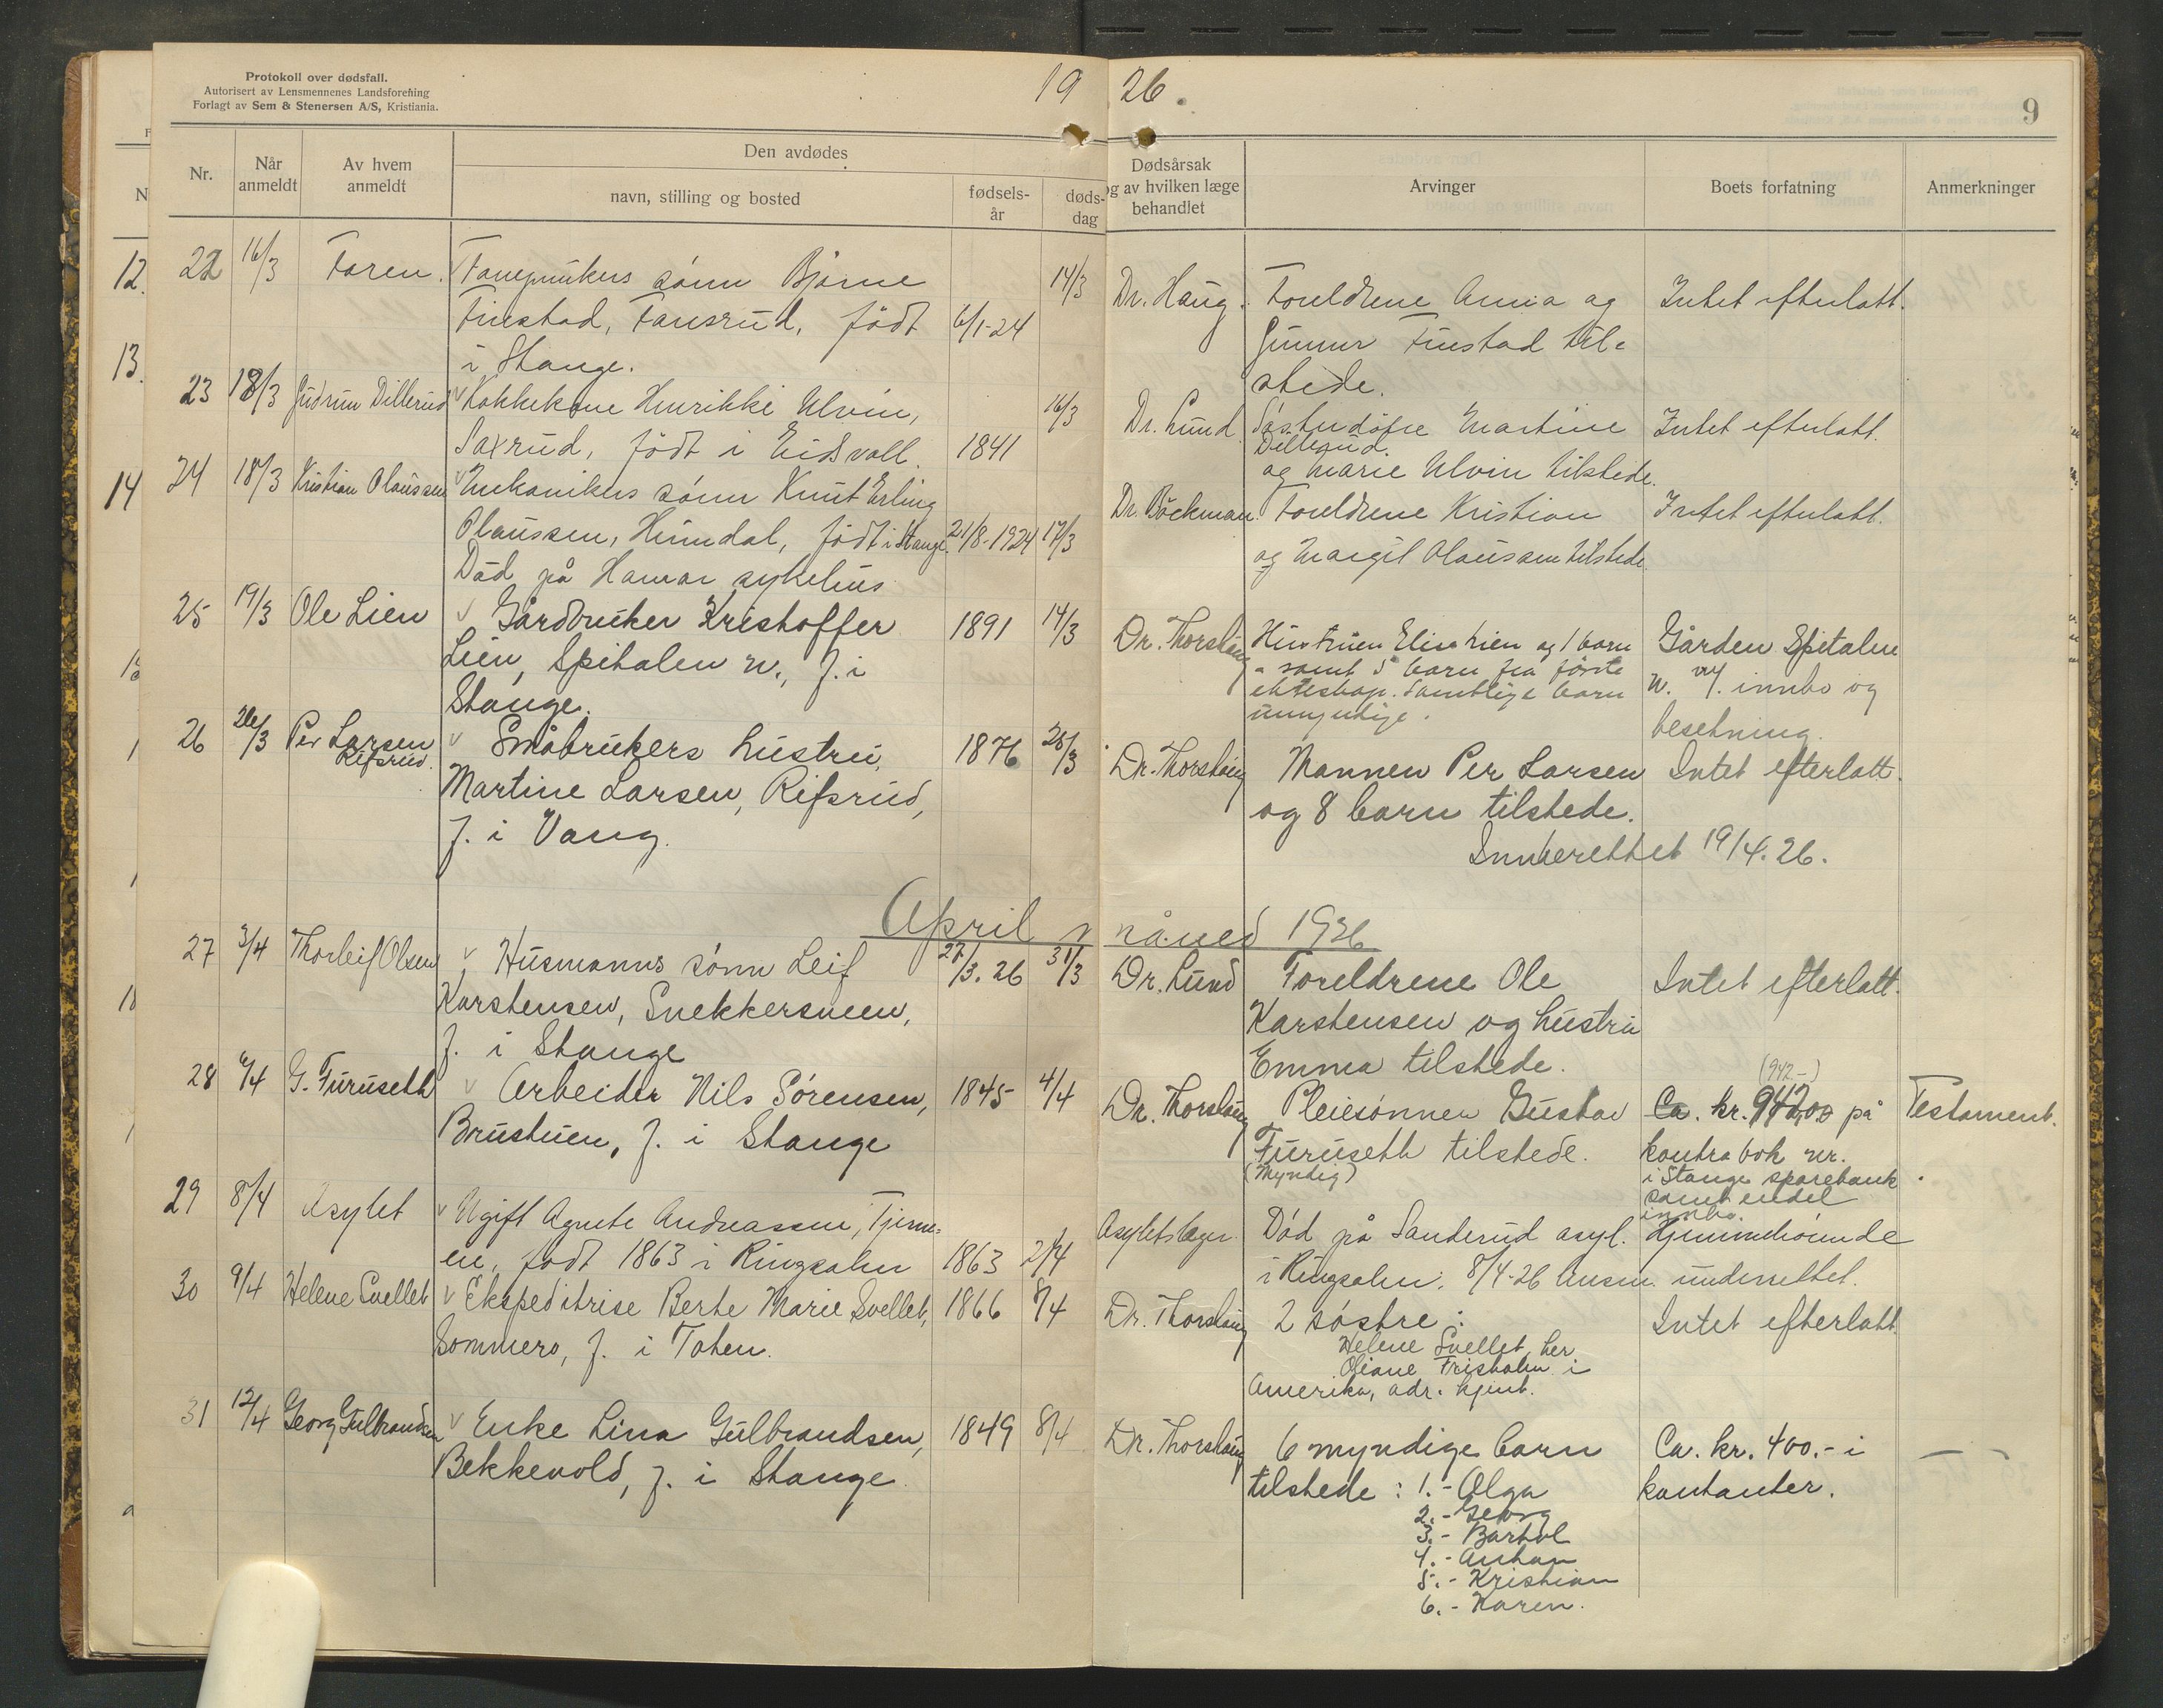 Protokoll over dødsfall.
Autorisert av Lensmennenes Landsforening
Forlagt av Sem & Stenersen A/S, Kristiania.
19 26.
9
Nr.
Når anmeldt
Av hvem anmeldt
Den avdødes
navn, stilling og bosted
fødsels-år
døds-dag
Dødsårsak og av hvilken læge behandlet
Arvinger
Boets forfatning
Anmerkninger
12.
13.
14
22 16/3 Faren. sønn Bjarne 14/3 Dr. Haug. Foreldrene Anna og Intet efterlatt.
Finstad, Fansrud, født 6/1-24 Gunnar Finstad til-
i Stange. stede.
23 18/3 Gudrun Dillerud Kokkekone Henrikke Ulvin, 16/3 Dr. Lund Søsterdøtre Martine Intet efterlatt.
Saxrud, født i Eidsvoll. 1841 Dillerud.
og Marie Ulvin tilstede.
24 18/3 Kristian Olaussen Mekanikers sønn Knut Erling Dr. Böckman Foreldrene Kristian Intet efterlatt.
Olaussen, Heimdal, født i Stange 21/8-1924 17/3 og Margit Olaussen tilstede
Død på Hamar sykehus
25 19/3 Ole Lien Gårdbruker Kristoffer 1891 14/3 Dr. Thorshaug Hustruen Elisa Lien og 1 barn Gården Spitalen
Lien, Spitalen n., f. i samt 5 barn fra første n. m/. innbo og
Stange. ekteskap. Samtlige barn besetning.
umyndige.
26 26/3 Per Larsen Småbrukers hustru, 1876 25/3 Dr. Thorshaug Mannen Per Larsen Intet efterlatt.
Rifsrud. Martine Larsen, Rifsrud, og 8 barn tilstede.
f. i Vang. Innberettet 19/4.26.
April måned 1926
27 3/4 Thorleif Olsen Husmanns sønn Leif 27/3.26 31/3 Dr. Lund Foreldrene Ole Intet efterlatt.
Karstensen, Snekkersveen, Karstensen og hustru
f. i Stange Emma tilstede.
(942.-)
28 6/4 G. Furuseth Arbeider Nils Sørensen, 1845 4/4 Dr. Thorshaug Pleiesønnen Gustav Ca. kr. 942,00 på Testament.
Brustuen, f. i Stange Furuseth tilstede. kontrabok nr.
(Myndig) i Stange sparebank
samt endel
innbo.
29 8/4 Asylet Ugift Agnete Andreassen, Asylets læger Død på Sanderud asyl. Hjemmehørende
en, født 1863 i Ringsaker 1863 2/4 i Ringsaker. 8/4-26 underrettet.
30 9/4 Helene Svellet Ekspeditrise Berte Marie Svellet, 1866 8/4 Dr. Thorshaug 2 søstre: Intet efterlatt
Sommero, f. i Toten. Helene Svellet, her
i
Amerika, adr. kjent.
31 12/4 Georg Gulbrandsen Enke Lina Gulbrandsen, 1849 8/4 Dr. Thorshaug 6 myndige barn Ca. kr. 400.- i —
Bekkevold, f. i Stange. tilstede: 1.- Olga kontanter.
2.- Georg
3.- Barthol
4.- Anton
5.- Kristian
6.- Karen.